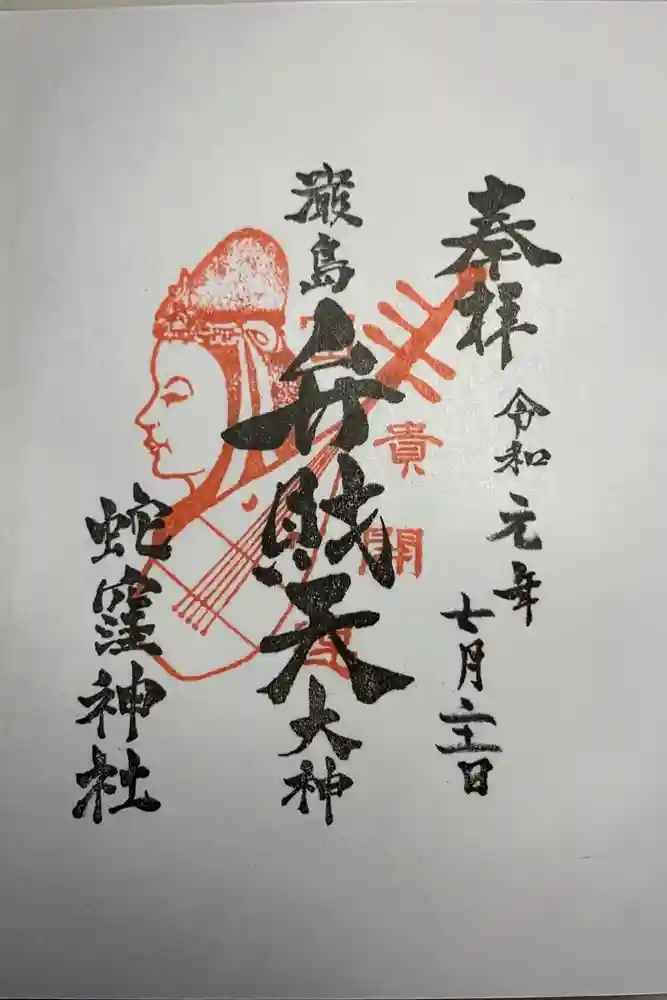 奉拝
令和元年
七月二十一日
厳島
弁財天
大神
貴
開
蛇窪神社